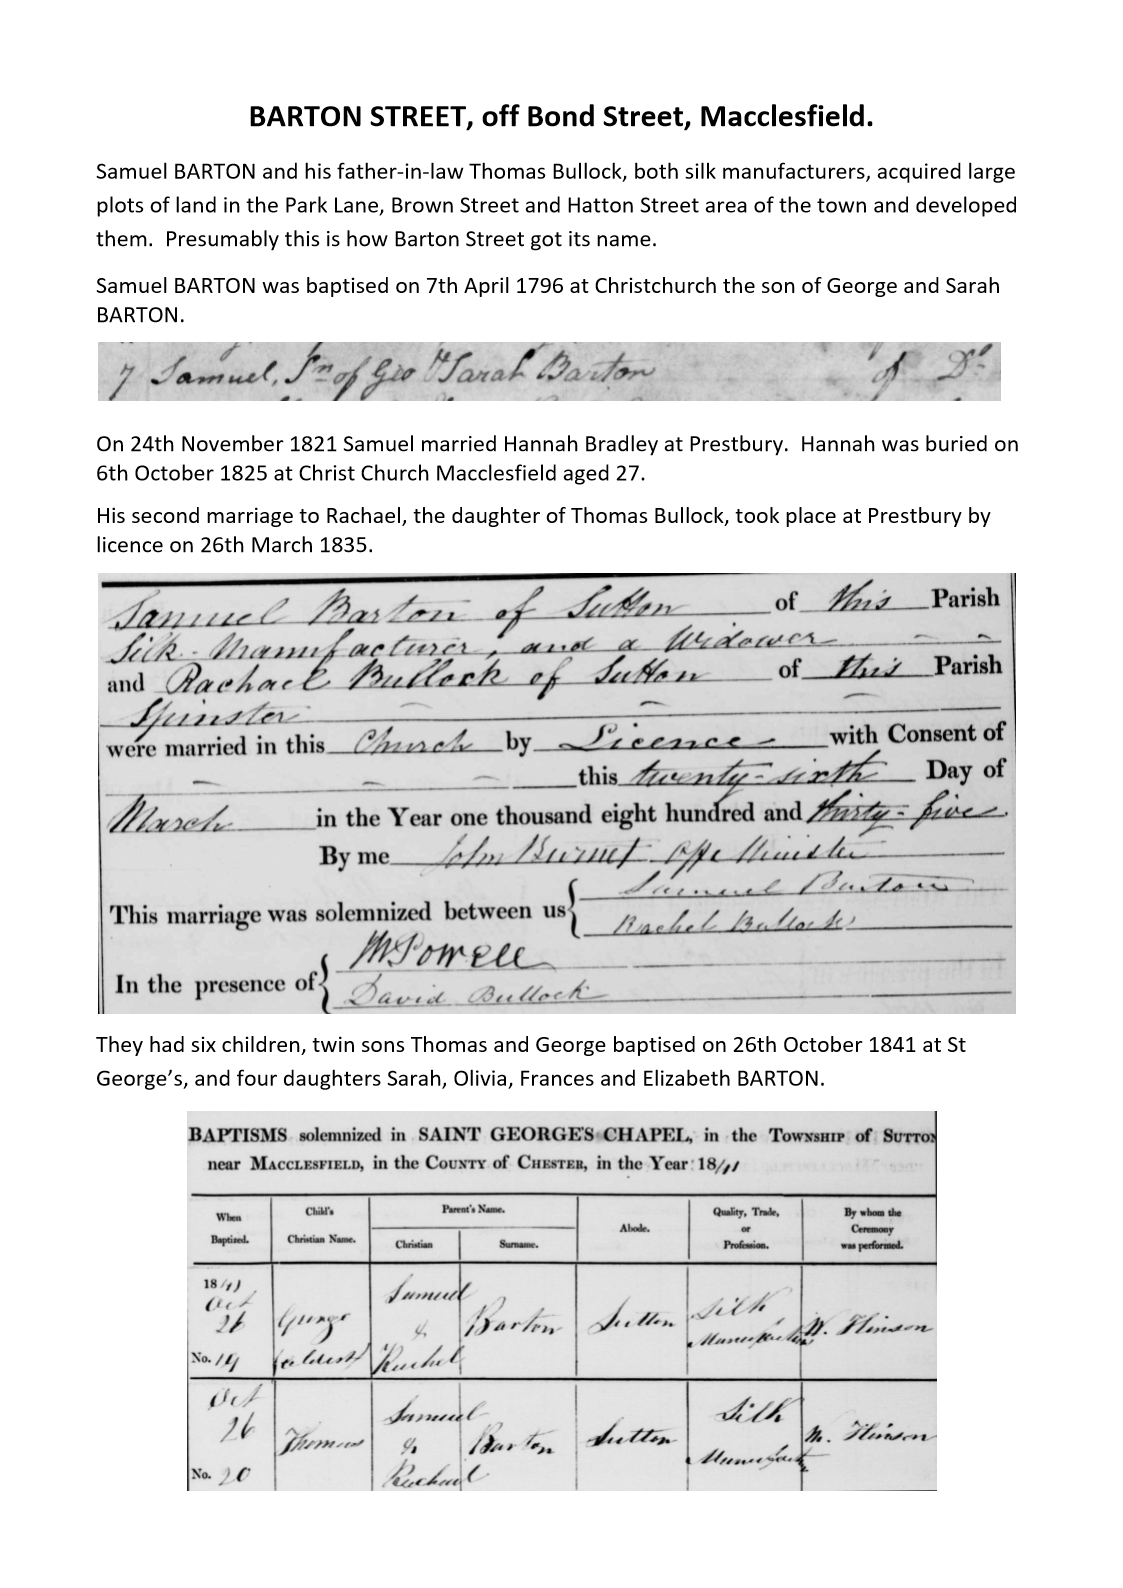 BARTON STREET, off Bond Street, Macclesfield.
Samuel BARTON and his father-in-law Thomas Bullock, both silk manufacturers, acquired large
plots of land in the Park Lane, Brown Street and Hatton Street area of the town and developed
them. Presumably this is how Barton Street got its name.
Samuel BARTON was baptised on 7th April 1796 at Christchurch the son of George and Sarah
BARTON.
7 Samuel, Sn of Geo & Sarah Barton of Do
On 24th November 1821 Samuel married Hannah Bradley at Prestbury. Hannah was buried on
6th October 1825 at Christ Church Macclesfield aged 27.
His second marriage to Rachael, the daughter of Thomas Bullock, took place at Prestbury by
licence on 26th March 1835.
Samuel Barton of Sutton of this Parish
Silk-Manufacturer, and a Widower
and Rachael Bullock of Sutton of this Parish
Spinster
were married in this Church by Licence with Consent of
this twenty-sixth Day of
March in the Year one thousand eight hundred and thirty-five
By me John Burnet Offg Minister
This marriage was solemnized between us
Samuel Barton
Rachel Bullock
In the presence of
David Bullock
They had six children, twin sons Thomas and George baptised on 26th October 1841 at St
George’s, and four daughters Sarah, Olivia, Frances and Elizabeth BARTON.
BAPTISMS solemnized in SAINT GEORGE'S CHAPEL, in the TOWNSHIP of SUTTON
near MACCLESFIELD, in the COUNTY of CHESTER, in the Year 1841
When Baptized. Child's Christian Name. Parent's Name. Christian Surname. Abode. Quality, Trade, or Profession. By whom the Ceremony was performed.
1841 Oct 26 No. 19 George (eldest) Samuel & Rachel Barton Sutton Silk Manufacturer W. Hinson
Oct 26 No. 20 Thomas Samuel & Rachael Barton Sutton Silk Manufacturer W. Hinson